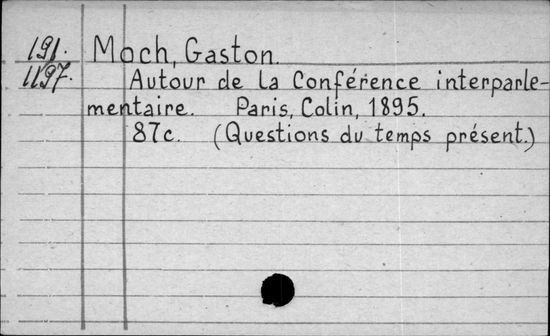 191. Moch, Gaston.
1197. Autour de la Conférence interparle-
mentaire. Paris, Colin, 1895.
87c. (Questions du temps présent.)